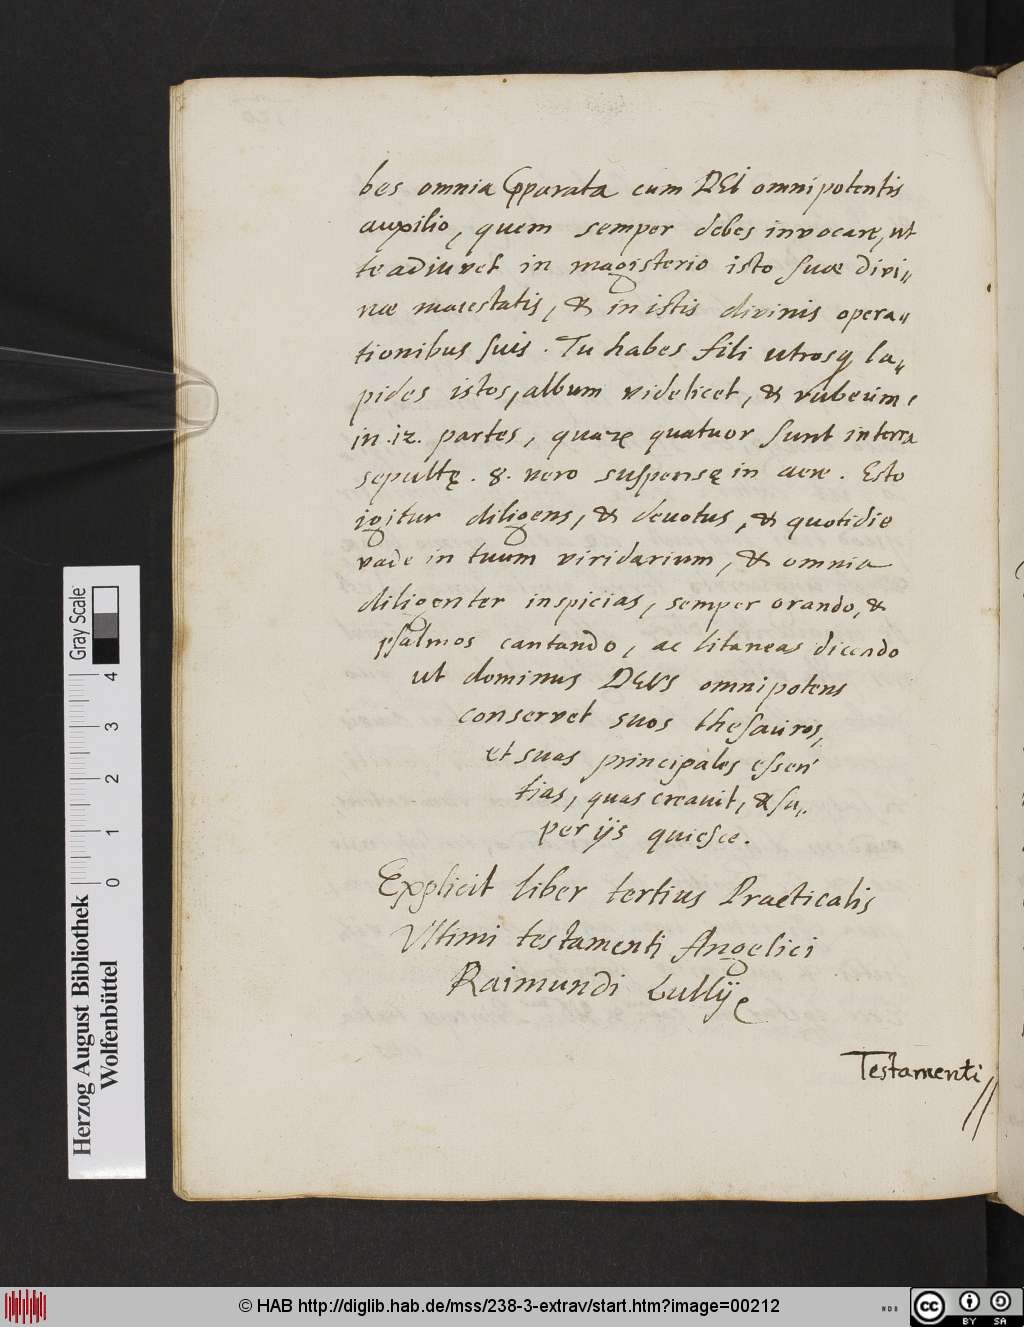 bes omnia pparata cum DEI omnipotentis
auxilio, quem semper debes invocare, ut
te adiuvet in magisterio isto suæ divi„
næ maiestatis, & in istis divinis opera„
tionibus suis. Tu habes fili utrosq la„
pides istos, album videlicet, & rubeum,
in .12. partes, quaꝝ quatuor sunt in terra
sepultę .8. vero suspensę in aere. Esto
igitur diligens, & devotus, & quotidie
vade in tuum viridarium, & omnia
diligenter inspicias, semper orando, &
psalmos cantando, ac litaneas dicendo
ut dominus DEUS omnipotens
conservet suos thesauros,
et suas principales essen
tias, quas creavit, & su„
per ijs quiesce.
Explicit liber tertius Practicalis
Ultimi testamenti Angelici
Raimundi Lullij
Testamenti
Gray Scale
4
3
2
1
0
Herzog August Bibliothek
Wolfenbüttel
© HAB http://diglib.hab.de/mss/238-3-extrav/start.htm?image=00212
NDB
cc BY SA